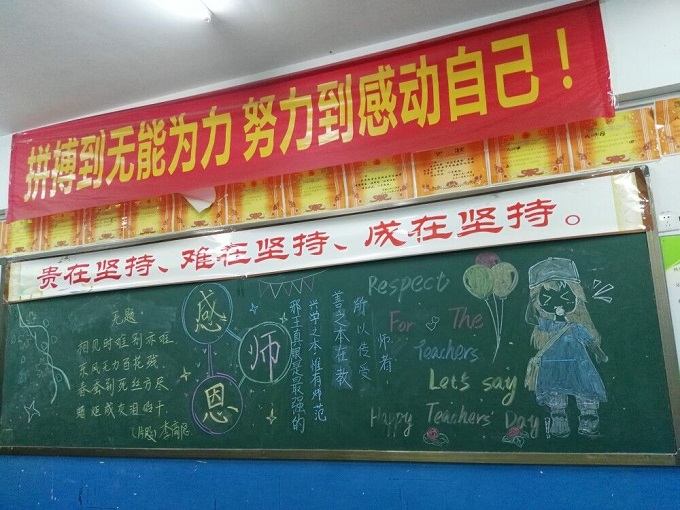 拼搏到无能为力 努力到感动自己！
贵在坚持、难在坚持、成在坚持。
无题.
相见时难别亦难
东风无力百花残
春蚕到死丝方尽
(片段) 李商隐
感
师
恩
师者
所以传受
善之本在教
兴学之本,惟有师范
邪王真眼是最强的
Respect
For The
Teachers
Let's say
Happy Teachers' Day!